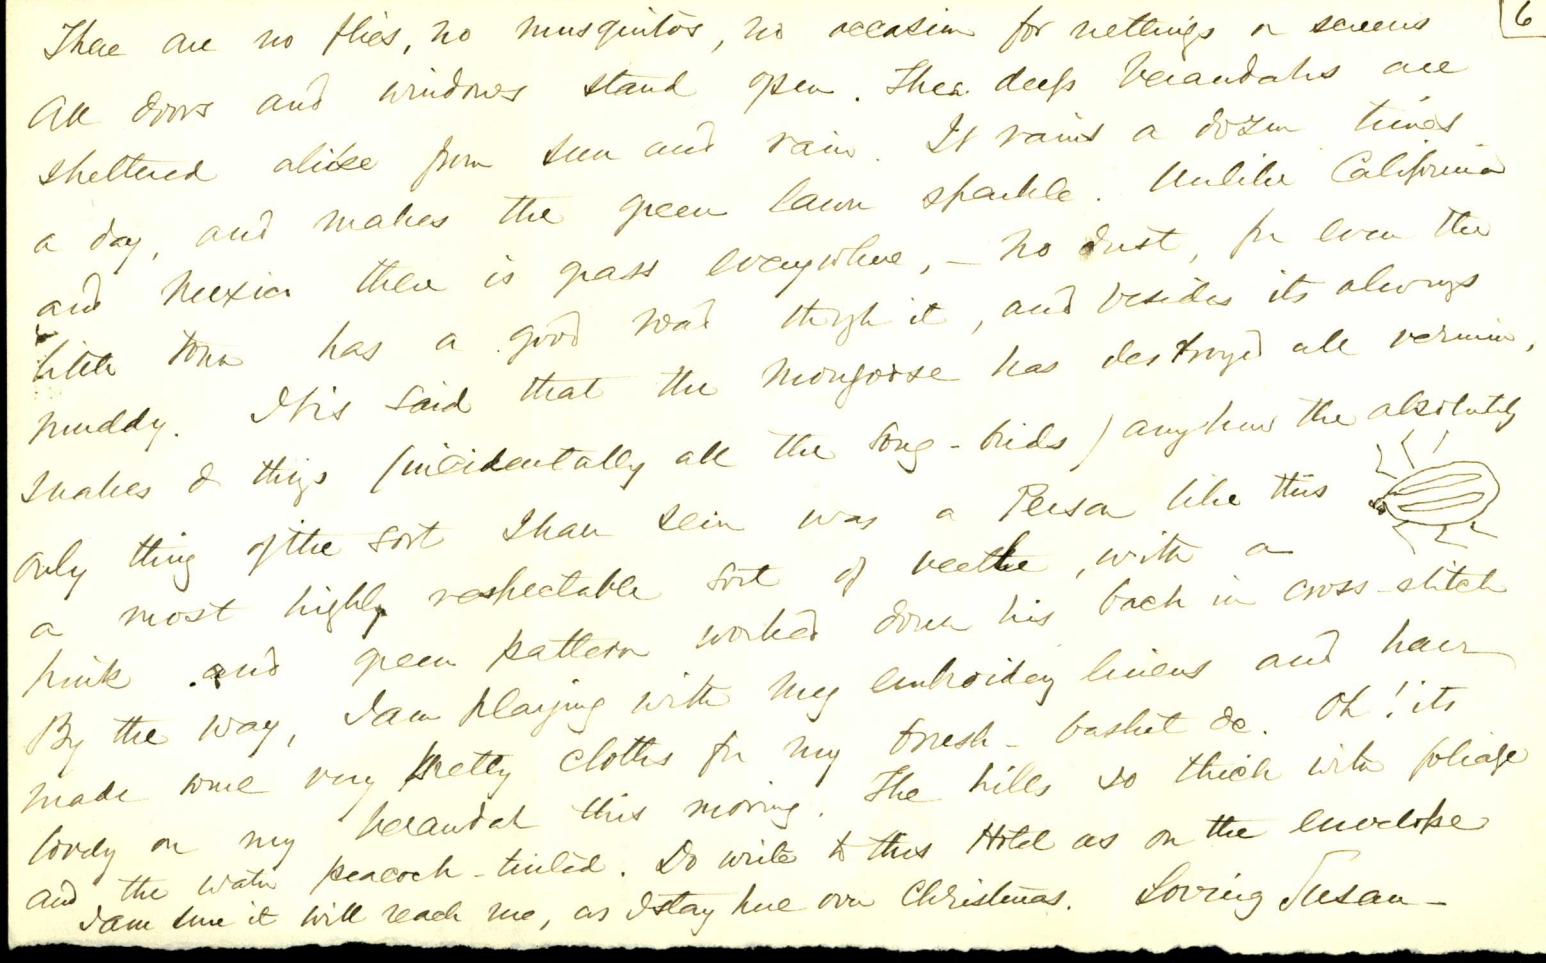 6
There are no flies, no musquitos, no occasion for nettings or screens
All doors and windows stand open. These deep verandahs are
sheltered alike from sun and rain. It rains a dozen times
a day, and makes the green lawn sparkle. Unlike California
and Mexico there is grass everywhere, – no dust, for even the
little town has a good road thrgh it, and besides its always
muddy. It is said that the Mongoose has destroyed all vermin,
snakes & things (incidentally all the song-birds) anyhow the absolutely
only thing of the sort I have seen was a Person like this
a most highly respectable sort of beetle, with a
pink and green pattern worked down his back in cross-stitch
By the way, I am playing with my embroidery linens and have
made some very pretty cloths for my brush-basket &c. Oh! its
lovely on my verandah this morning. The hills so thick with foliage
and the water peacock-tinted. Do write to this Hotel as on the envelope
I am sure it will reach me, as I stay here over Christmas. Loving Susan –